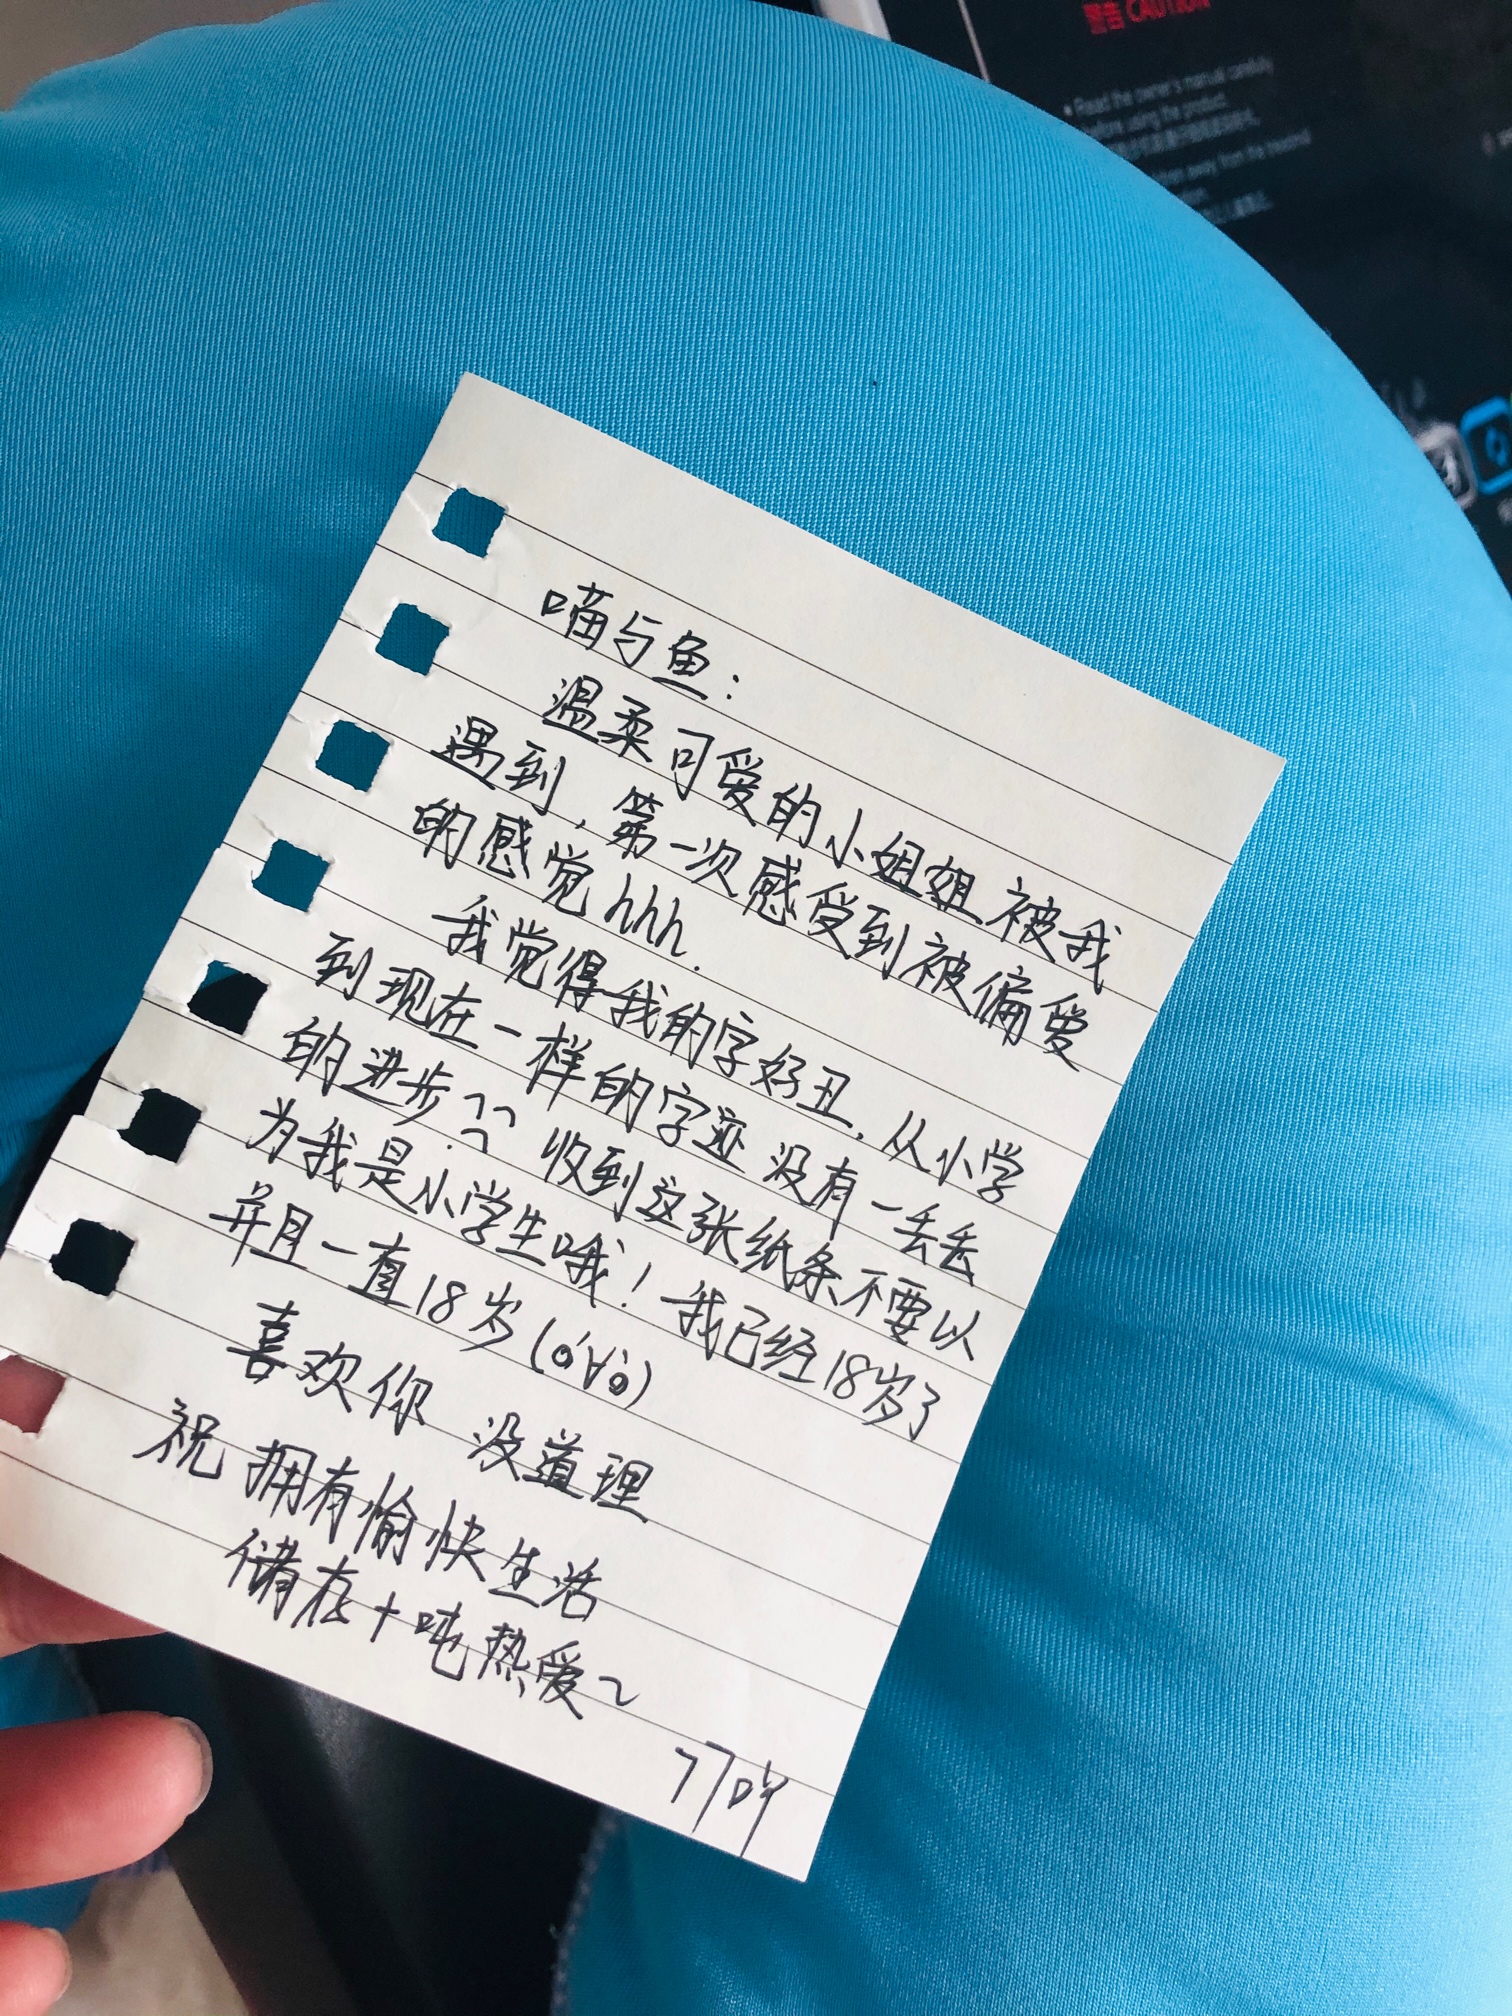 警告 CAUTION
Read the owner's manual carefully
before using the product.
喵与鱼：
温柔可爱的小姐姐被我
遇到，第一次感受到被偏爱
的感觉hhh.
我觉得我的字好丑，从小学
到现在一样的字迹 没有一丢丢
的进步 收到这张纸条不要以
为我是小学生哦！我已经18岁了
并且一直18岁
喜欢你 没道理
祝 拥有愉快生活
储存十吨热爱~